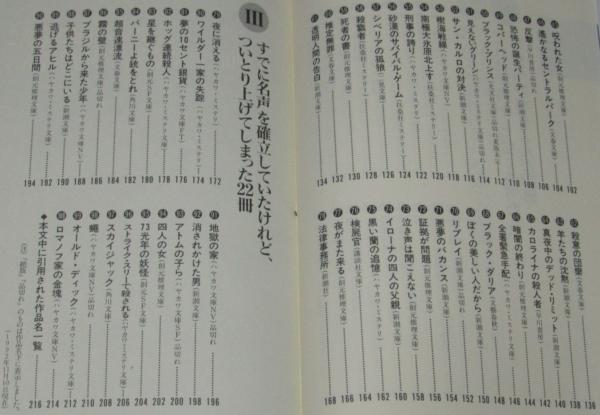 45 呪われた女(創元推理文庫) 102
46 遥かなるセントラルパーク(文春文庫) 104
47 恐怖の誕生パーティ(新潮文庫) 106
48 反撃 108
49 コパーヘッド(創元推理文庫)品切れ 110
50 ブラック・プリンス 112
51 見えないグリーン(ハヤカワ・ミステリ文庫)品切れ 114
52 サン・カルロの対決(扶桑社ミステリー) 116
53 樹海戦線(ハヤカワ文庫NV) 118
54 刑事の誇り(ハヤカワ・ミステリ文庫) 120
55 南極大氷原北上す(扶桑社ミステリー) 122
56 砂漠のサバイバル・ゲーム(二見文庫) 124
57 シベリアの孤狼(二見文庫) 126
58 殺戮者(扶桑社ミステリー) 128
59 死者の書(創元推理文庫) 130
60 推定無罪(文春文庫) 132
61 透明人間の告白(新潮文庫) 134
62 殺意の団欒(文春文庫) 136
63 羊たちの沈黙(新潮文庫) 138
64 真夜中のデッド・リミット(新潮文庫) 140
65 カロライナの殺人者(早川書房) 142
66 暗闇の終わり(創元推理文庫) 144
67 全署緊急手配(ハヤカワ・ミステリ文庫) 146
68 ブラック・ダリア(文藝春秋) 148
69 ぼくの美しい人だから(新潮文庫) 150
70 リプレイ(新潮文庫) 152
71 悪夢のバカンス(新潮文庫) 154
72 証拠が問題(創元推理文庫) 156
73 泣き声は聞こえない(創元推理文庫) 158
74 イローナの四人の父親(新潮文庫) 160
75 黒い蘭の追憶(新潮文庫) 162
76 検屍官(講談社文庫) 164
77 夜がまた来る(創元推理文庫) 166
78 法律事務所(新潮社) 168
III すでに名声を確立していたけれど、
ついとり上げてしまった22冊
79 夜に消える(ハヤカワ・ミステリ) 172
80 ワイルダー一家の失踪(ハヤカワ・ミステリ) 174
81 夢の10セント銀貨(ハヤカワ文庫FT) 176
82 ホッグ連続殺人(ハヤカワ・ミステリ文庫) 178
83 星を継ぐもの(創元SF文庫) 180
84 バーニーよ銃をとれ(角川文庫) 182
85 超音速漂流(文春文庫) 184
86 霧の壁(創元推理文庫)品切れ 186
87 ブラジルから来た少年(ハヤカワ文庫NV) 188
88 子供たちはどこにいる(新潮文庫) 190
89 逃げるアヒル(ハヤカワ・ミステリ文庫) 192
90 悪夢の五日間(創元推理文庫) 194
91 地獄の家(ハヤカワ文庫NV)品切れ 196
92 消されかけた男(新潮文庫) 198
93 アトムの子ら(ハヤカワ文庫SF)品切れ 200
94 四人の女(創元推理文庫) 202
95 73光年の妖怪(創元SF文庫) 204
96 ストライク・スリーで殺される(ハヤカワ・ミステリ文庫) 206
97 スカイジャック(角川文庫) 208
98 蠅(ハヤカワ文庫NV)品切れ 210
99 オールド・ディック(ハヤカワ・ミステリ文庫) 212
100 ロマノフ家の金塊(ハヤカワ文庫NV) 214
◆本文中に引用された作品名一覧 216
(1992年11月10日現在)